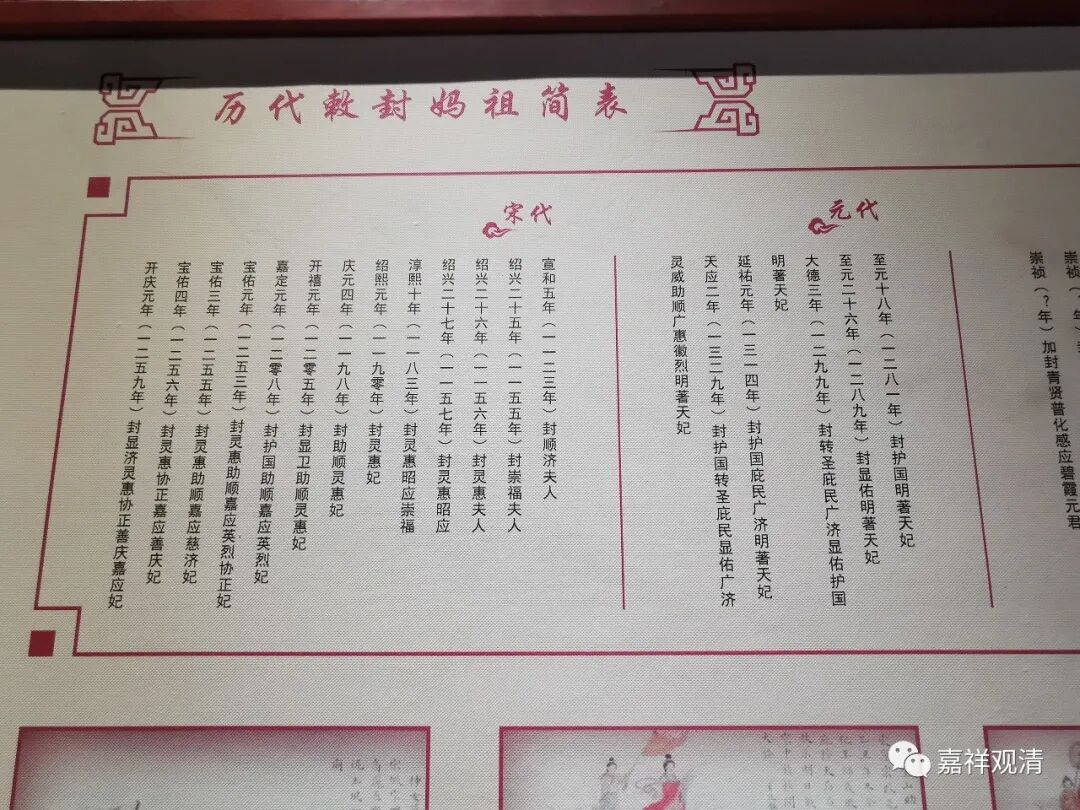 历代敕封妈祖简表
崇祯（?年）加封青贤普化感应碧霞元君
元代
至元十八年（一二八一年）封护国明著天妃
至元二十六年（一二八九年）封显佑明著天妃
大德三年（一二九九年）封转圣庇民广济显佑护国
明著天妃
延祐元年（一三一四年）封护国庇民广济明著天妃
天应二年（一三二九年）封护国转圣庇民显佑广济
灵威助顺广惠徽烈明著天妃
宋代
宣和五年（一一二三年）封顺济夫人
绍兴二十五年（一一五五年）封崇福夫人
绍兴二十六年（一一五六年）封灵惠夫人
绍兴二十七年（一一五七年）封灵惠昭应
淳熙十年（一一八三年）封灵惠昭应崇福
绍熙元年（一一九零年）封灵惠妃
庆元四年（一一九八年）封助顺灵惠妃
开禧元年（一二零五年）封显卫助顺灵惠妃
嘉定元年（一二零八年）封护国助顺嘉应英烈妃
宝佑元年（一二五三年）封灵惠助顺嘉应英烈协正妃
宝佑三年（一二五五年）封灵惠助顺嘉应慈济妃
宝佑四年（一二五六年）封灵惠协正嘉应善庆妃
开庆元年（一二五九年）封显济灵惠协正善庆嘉应妃
嘉祥观清